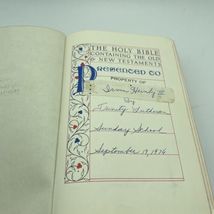 THE HOLY BIBLE
CONTAINING THE OLD
& NEW TESTAMENTS
PRESENTED TO
PROPERTY OF
Irvin
By
Trinity Lutheran
Sunday School
September 19, 1976